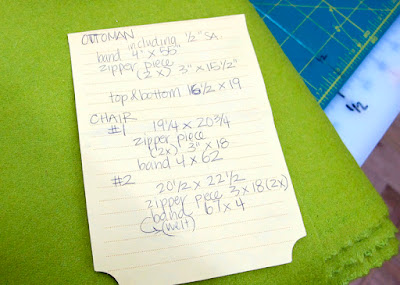 OTTOMAN
including 1/2" SA.
band 4" x 55"
zipper piece
(2x) 3" x 15 1/2"
top & bottom 16 1/2 x 19
CHAIR
#1 19 1/4 x 20 3/4
zipper piece
(2x) 3" x 18
band 4 x 62
#2 20 1/2 x 22 1/2
zipper piece 3 x 18 (2x)
band 67 x 4
(welt)